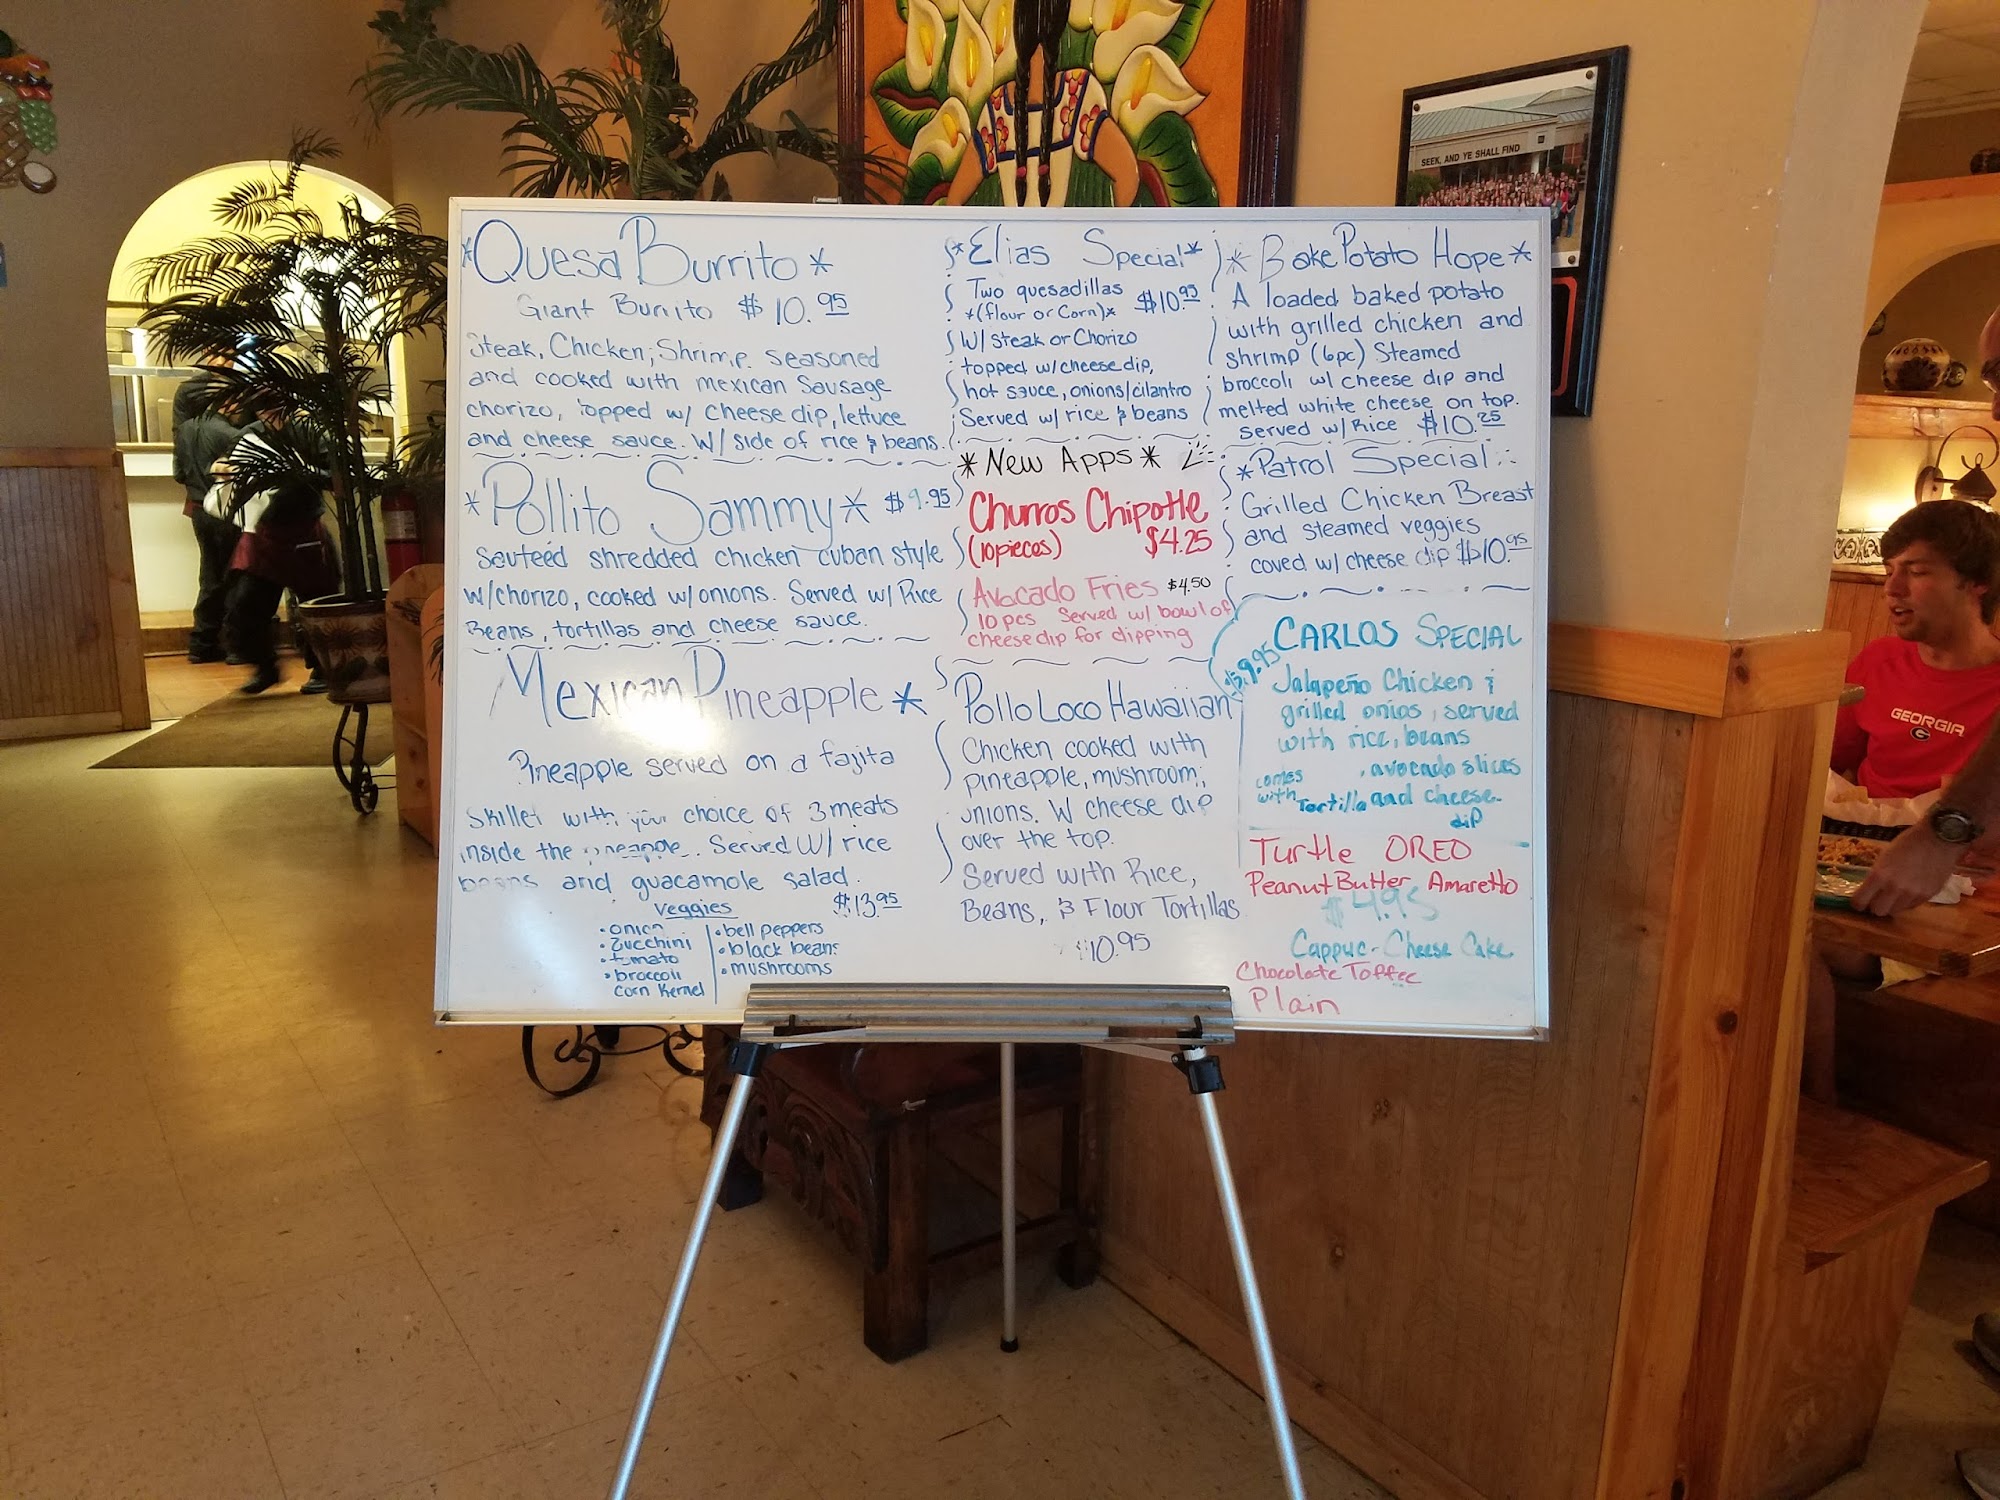 *Quesa Burrito*
Giant Burrito $10.95
Steak, Chicken, Shrimp seasoned
and cooked with mexican sausage
chorizo, topped w/ cheese dip, lettuce
and cheese sauce. W/ side of rice & beans.
*Pollito Sammy* $9.95
Sauteéd shredded chicken cuban style
w/chorizo, cooked w/onions. Served w/ Rice
Beans, tortillas and cheese sauce.
Mexican Pineapple*
Pineapple served on a fajita
Skillet with your choice of 3 meats
inside the pineapple. Served W/ rice
beans and guacamole salad.
$13.95
Veggies
•onion
•Zucchini
•tomato
•broccoli
corn Kernel
•bell peppers
•black beans
•mushrooms
*Elias Special*
Two quesadillas
*(flour or Corn)* $10.95
W/ steak or Chorizo
topped w/cheese dip,
hot sauce, onions/cilantro
Served w/ rice & beans
*New Apps*
Churros Chipotle
(10pieces) $4.25
Avocado Fries $4.50
10 pcs Served w/ bowl of
cheese dip for dipping
Pollo Loco Hawaiian
Chicken cooked with
pineapple, mushroom,
onions. W cheese dip
over the top.
Served with Rice,
Beans, & Flour Tortillas
$10.95
*Bake Potato Hope*
A loaded baked potato
with grilled chicken and
shrimp (6pc) Steamed
broccoli w/ cheese dip and
melted white cheese on top.
Served w/ Rice $10.25
*Patrol Special
Grilled Chicken Breast
and steamed veggies
coved w/ cheese dip $10.95
CARLOS SPECIAL
$9.95
Jalapeño Chicken &
grilled onios, served
with rice, beans
, avocado slices
comes with Tortilla and cheese
dip
Turtle OREO
Peanut Butter Amaretto
$4.95
Cappuc-Cheese Cake
Chocolate Toffee
Plain
SEEK, AND YE SHALL FIND
GEORGIA
G